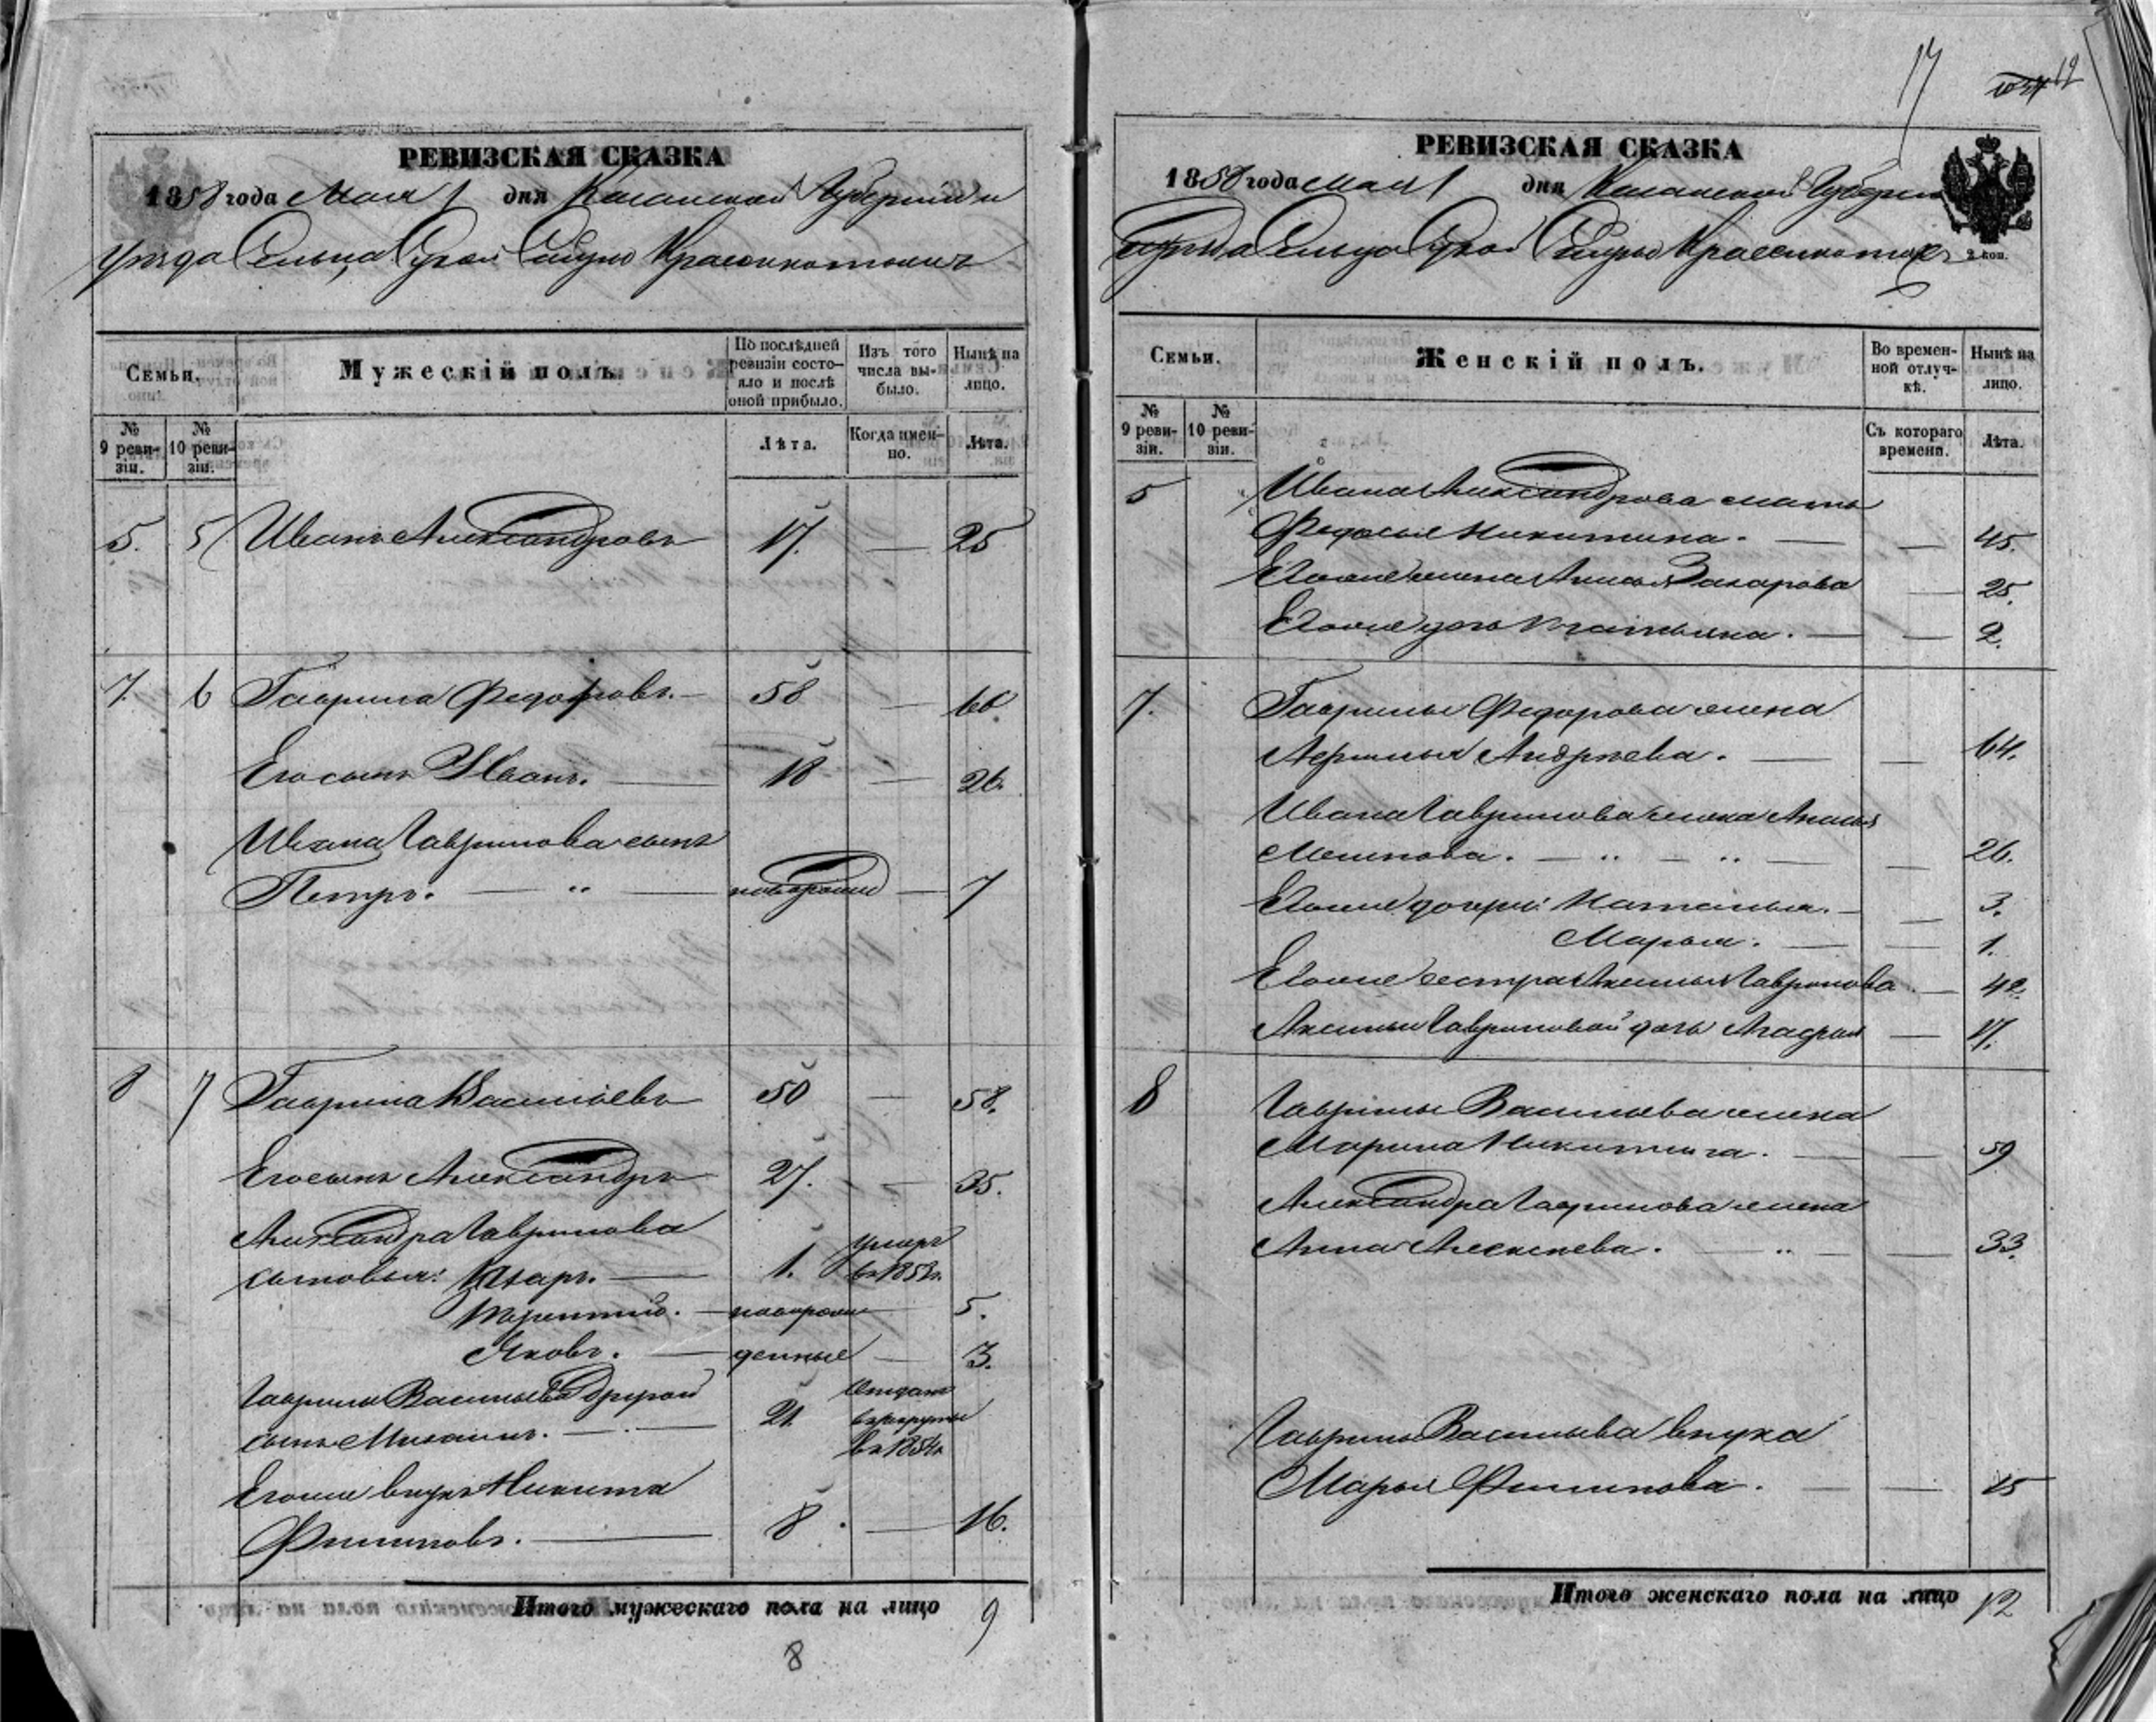 РЕВИЗСКАЯ СКАЗКА
1858 года Мая 1 дня Казанской Губерніи и
уѣзда Сельца
Семьи.
Мужескій полъ.
По послѣдней ревизіи состояло и послѣ оной прибыло.
Изъ того числа выбыло.
Нынѣ на лицо.
№ 9 ревизіи.
№ 10 ревизіи.
Лѣта.
Когда именно.
Лѣта.
5. 5 Иванъ Александровъ 17. — 25
7. 6 Гаврила Федоровъ. — 58 — 66
Его сынъ Иванъ. — 18 — 26.
Ивана Гаврилова сынъ
Петръ. — „ — новорожд — 7
8 7 Гаврила Васильевъ 50 — 58.
Его сынъ Александръ 27. — 35.
Александра Гаврилова
сыновья: — 1. умеръ въ 1853.
Терентій. — новорож — 5.
Яковъ. — денные — 3.
Гаврилы Васильева другой
сынъ Михаилъ. — 21 Отданъ в рекруты въ 1854
Его же внукъ Никита
Филиповъ. — 8. — 16.
Итого мужескаго пола на лицо 9
8
17
РЕВИЗСКАЯ СКАЗКА
1858 года мая 1 дня Казанской Губерніи
уѣзда Сельца
2 коп.
Семьи.
Женскій полъ.
Во временной отлучкѣ.
Нынѣ на лицо.
№ 9 ревизіи.
№ 10 ревизіи.
Съ котораго времени.
Лѣта.
5 Ивана Александрова мать
Федосья Никитина. — — 45.
Его же жена Анисья Захарова — 25.
Его же дочь Татьяна. — — 2.
7. Гаврилы Федорова жена
Андрѣева. — — 64.
Ивана Гаврилова жена
— „ — „ — — 26.
Его же дочери: Наталья. — — 3.
Марья. — — 1.
Его же сестра Аксинья Гаврилова. — 42.
Аксиньи Гавриловой дочь — 17.
8 Гаврилы Васильева жена
Марина Никитина. — — 59
Александра Гаврилова жена
Анна Алексѣева. — „ — — 33.
Гаврилы Васильева внука
Марья Филипова. — — 15
Итого женскаго пола на лицо 12